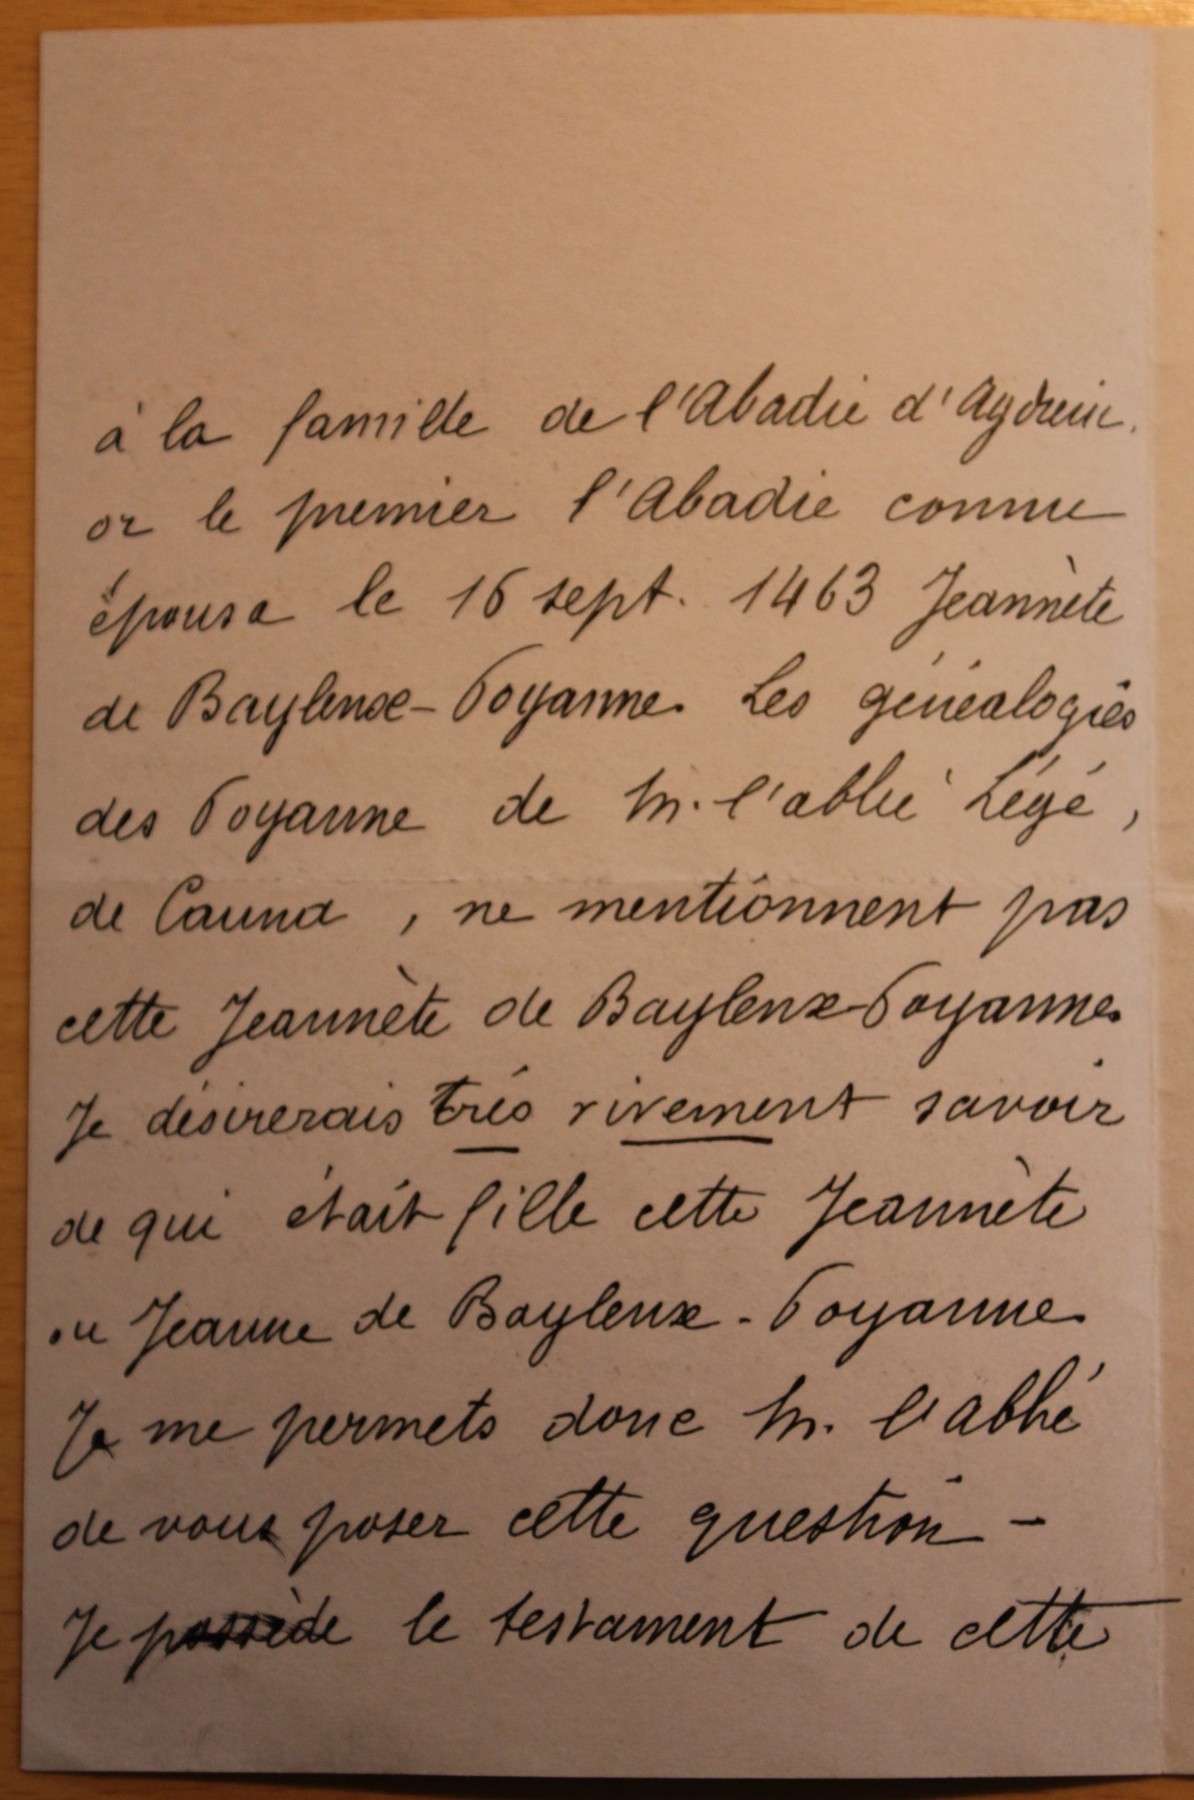 à la famille de l'Abadie d'Aydrein.
or le premier l'Abadie connu
épousa le 16 sept. 1463 Jeannète
de Baylenx-Poyanne. Les généalogies
des Poyanne de M. l'abbé Légé,
de Cauna, ne mentionnent pas
cette Jeannète de Baylenx-Poyanne.
Je désirerais très vivement savoir
de qui était fille cette Jeannète
ou Jeanne de Baylenx-Poyanne.
Je me permets donc M. l'abbé
de vous poser cette question -
Je possède le testament de cette